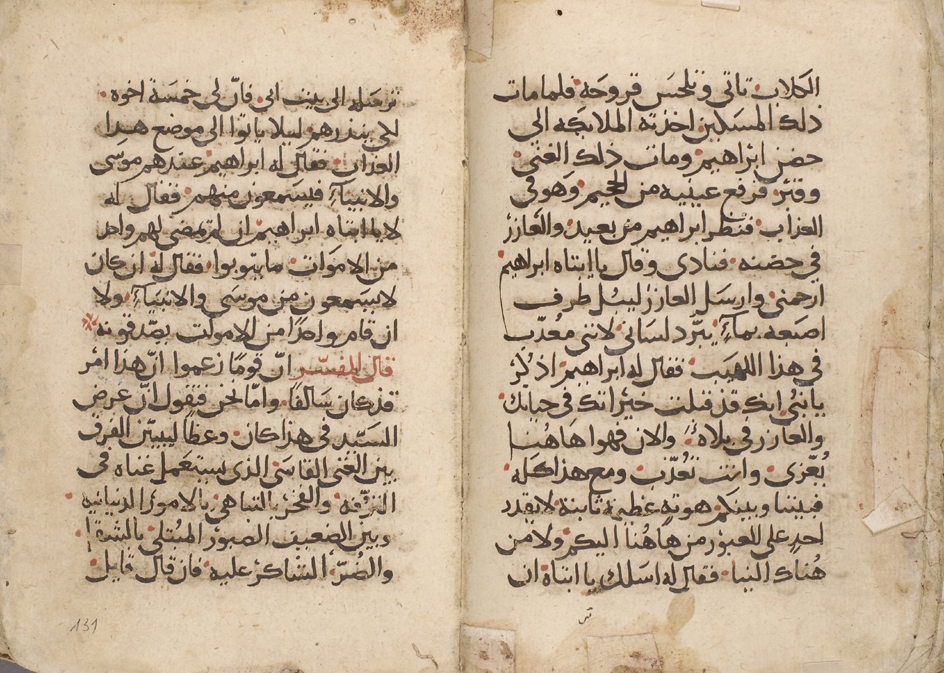 الكلاب تاتي وتلحس قروحه فلما مات
ذلك المسكين اخذته الملايكه الى
حضن ابراهيم ومات ذلك الغني
وقبر فرفع عينيه من الجحيم وهو في
العذاب فنظر ابراهيم من بعيد والعازر
في حضنه فنادى وقال يا ابتاه ابراهيم
ارحمني وارسل العازر ليبل طرف
اصبعه بمآء يبرد لساني لانني معذب
في هذا اللهيب فقال له ابراهيم اذكر
يا بني انك قد قبلت خيراتك في حياتك
والعازر في بلاه والان فهوا هاهنا
يعزى وانت تعذب ومع هذا كله
فبيننا وبينكم هوته عظيمة ثابتة لا يقدر
احد على العبور من هاهنا اليكم ولا من
هناك الينا فقال له اسلك يا ابتاه ان
ترسله الى بيت ابي فان لي خمسة اخوه
لكي ينذرهم ليلا ياتوا الى موضع هذا
العذاب فقال له ابراهيم عندهم موسى
والانبيآء فيسمعون منهم فقال له
لا يا ابتاه ابراهيم ان لم يمضي لهم واحد
من الاموات ما يتوبوا فقال له ان كان
لا يسمعون من موسى والانبيآء ولا
ان قام واحدا من الاموات يصدقونه
قال المفسر ان قوما زعموا ان هذا امر
قد كان سالفا واما نحن فنقول ان غرض
السيد في هذا كان وعظا ليبين الفرق
بين الغني القاسي الذي يستعمل غناه في
النزقه والفخر التباهي بالامور الدنيانيه
وبين الضعيف الصبور المبتلي بالشقا
والضر الشاكر عليه فان قال قايل
131